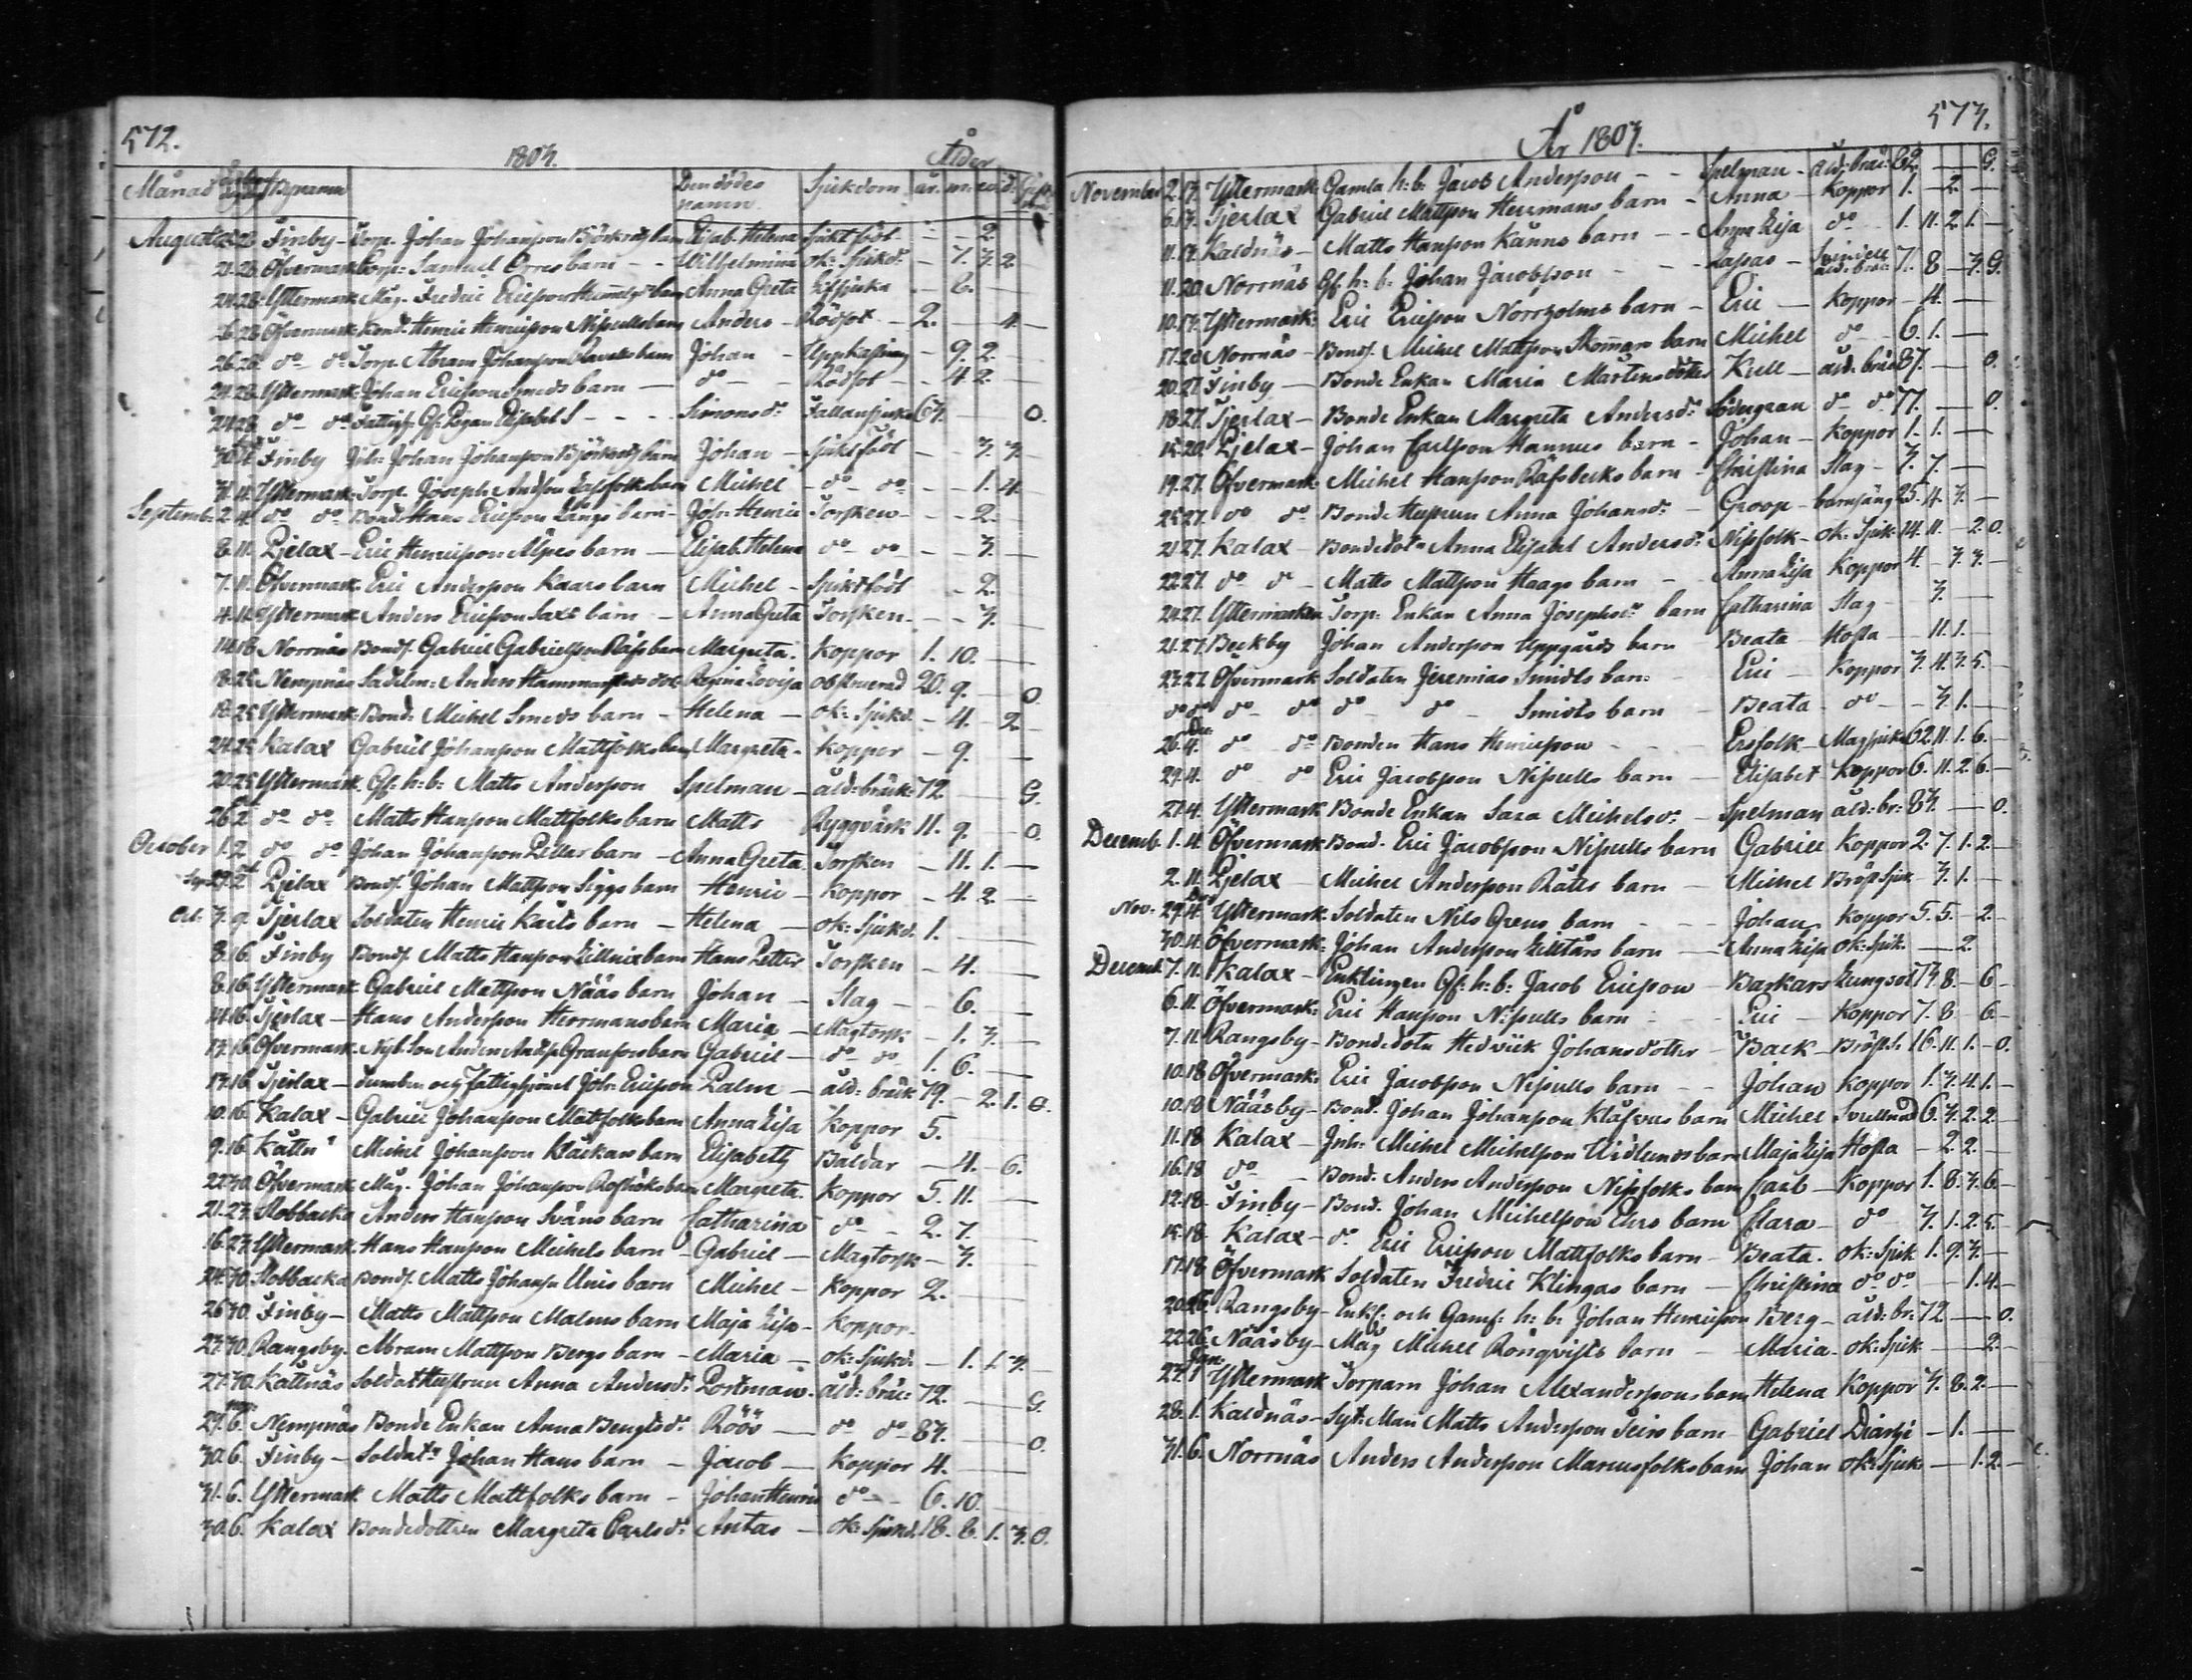 572.
1803.
Ålder
Månad Bynamn Den dödes namn Sjukdom år. m. v. d.
Augusti 23. Finby - Torp. Johan Johansson Björkqvists barn Elisab. Helena sjukt född - - 2.
21. 28. Öfvermark Torp: Samuel Orres barn - - Wilhelmina ok: sjukd: - 7. 3. 2.
24. 28. Yttermark Måg. Fredric Ericsson barn Anna Greta - 6. -
26. 28. Öfvermark Bond. Henric Henricsson Nissulls barn Anders - Rödsot - 2. - 4. -
26. 28. do - do Torp. Abram Johansson barn Johan - Uppkastning - 9. 2. -
24. 28. Yttermark Johan Ericsson Smeds barn - do - Rödsot - - 4. 2. -
24. 28. do - do Fattigh. Gf. Pigan Elisabet S - - - Simonsdr Fallansjuka 63. - O.
Finby Inh: Johan Johansson Björkqvists barn Johan - sjukt född - 3. 3. -
31. 11. Yttermark Torp. Joseph Andsson Lassfolks barn Michel - do - do - - 1. 4. -
Septemb: 2. 4. do do Bond. Hans Ericsson Långs barn - Joh: Henric Torsken - - 2. -
8. 11. Pjelax - Eric Henricsson Alpes barn - Elisab. Helena do - do - - 3. -
7. 11. Öfvermark Eric Andersson Kaars barn Michel - Sjukt född - 2. -
4. 11. Yttermark Anders Ericsson Sax's barn - Anna Greta Torsken - - 3. -
14. 18. Norrnäs Bond. Gabriel Gabrielsson Räfs barn Margreta. Koppor 1. 10. -
18. 25. Nempnäs Sadelm: Anders dotr Regina Lovisa obstruerad 20. 9. - O
18. 25. Yttermark Bond: Michel Smeds barn - Helena - ok: Sjukd. - 4. - 2. -
24. 25. Kalax Gabriel Johansson Mattfolks barn Margreta - Koppor - 9. -
20. 25. Yttermark. Gf. h: b: Matts Andersson Spelman - åld: bräck: 72. - G.
26. 2. do - do - Matts Hansson Mattfolks barn Matts Ryggvärk 11. 9. - O.
October 1. 2. do - do Johan Johansson Pellas barn - Anna Greta. Torsken - 11. 1. -
Sep. 29. 2. Pjelax Bond. Johan Mattsson Siggs barn Henric - Koppor - 4. 2. -
Oct. 3. 9. Tjerlax Soldaten Henric Kaits barn - Helena - ok: Sjukd. 1. -
8. 16. Finby Bond. Matts Hansson Lillnix barn Hans Petter Torsken - 4. -
8. 16. Yttermark Gabriel Mattsson Nääs barn Johan - Slag - 6. -
14. 16. Tjerlax - Hans Andersson Herrmans barn Maria - Magtorsk - 1. 3. -
13. 16. Öfvermark Nyb. Son Anders Andss. Granfors barn Gabriel - do - do 1. 6. -
13. 16. Tjerlax - dumben och fattighjonet Joh: Ericsson Palm - åld: bräck 79. - 2. 1. G.
10. 16. Kalax - Gabriel Johansson Mattfolks barn Anna Lisa Koppor 5.
9. 16. Kåttn: Michel Johansson Kläckars barn Elisabeth Baldar - 4. - 6.
22. 30. Öfvermark Måg. Johan Johansson barn Margreta. Koppor 5. 11. -
21. 23. Stobbacka Anders Hansson Svans barn Catharina do - - 2. 7. -
16. 23. Yttermark. Hans Hansson Michels barn - Gabriel - Magtorsk - 3. -
24. 30. Stobbacka Bond. Matts Johanss. Unis barn Michel - Koppor 2. -
26. 30. Finby - Matts Mattsson Malms barn Maja Lisa - Koppor.
23. 30. Rangsby. Abram Mattsson Bergs barn - Maria - ok: Sjukd: - 1. 1. 3. -
27. 30. Kåttnäs Soldat Hustrun Anna Andersdr. Portman - åld: bräc: 72. - G.
29. 6. Nempnäs Bonde Enkan Anna Bengtsdr. Röös - do - do 83. - O.
30. 6. Finby - Soldat: Johan Hans barn - Jacob - Koppor 4. -
31. 6. Yttermark Matts Mattfolks barn - Johan Henric do - - 6. 10. -
30. 6. Kalax Bondedottren Margreta Carlsdr. Antas - ok: Sjukd. 18. 8. 1. 3. O.
573.
År 1803.
November 2. 13. Yttermark: Gamla h: b: Jacob Andersson - - Spelman - åld: bräc: 62. - G.
6. 13. Tjerlax Gabriel Mattsson Herrmans barn - Anna - Koppor 1. - 2. -
11. 13. Kaldnäs - Matts Hansson Känns barn - - Anna Lisa do 1. 11. 2. 1. -
11. 20. Norrnäs Gf. h: b: Johan Jacobsson - - Lassas - 7. 8 - 3. G.
10. 13. Yttermark: Eric Ericsson Norrholms barn - Eric - Koppor - 4. -
17. 20. Norrnäs - Bond. Michel Mattsson Skomars barn Michel do - 6. 1. -
20. 27. Finby - Bonde Enkan Maria Mårtensdotter Krell - åld: bräc 87. - O.
18. 27. Tjerlax - Bonde Enkan Margreta Andersdr. Södergran do do 77. - O.
15. 20. Pjelax - Johan Carlsson Hannus barn - Johan - Koppor 1. 1. -
19. 27. Öfvermark. Michel Hansson Räfsbecks barn - Christina Slag - 3. 7. -
25. 27. do do Bonde Hustrun Anna Johansdr. - Groop - barnsäng 25. 4. 3. -
21. 27. Kalax - Bondedotr Anna Elisabet Andersdr. Nissfolk - ok: Sjuk. 14. 11. - 2. O.
22. 27. do - do - Matts Mattsson Haags barn - Anna Lisa Koppor 4. - 3. 3. -
24. 27. Yttermarken Torp: Enkan Anna Josephsdr. barn Catharina Slag - 3. -
21. 27. Beckby Johan Andersson Uppgårds barn Beata - Hosta - 11. 1. -
23. 27. Öfvermark Soldaten Jeremias Smidts barn - Eric - Koppor 3. 4. 3. 5. -
do do do - do do - do - Smidts barn - Beata - do - - 3. 1. -
Dec: 26. 4. do - do Bonden Hans Henricsson - - - Ersfolk - Magsjuka 62. 11. 1. 6. -
29. 4. do do Eric Jacobsson Nissulls barn - Elisabet Koppor 6. 11. 2. 6. -
27. 4. Yttermark Bonde Enkan Sara Michelsdr. - Spelman åld: br: 83. - O.
Decemb. 1. 4. Öfvermark Bond. Eric Jacobsson Nissulls barn Gabriel Koppor 2. 7. 1. 2. -
2. 11. Pjelax - Michel Andersson Rätts barn - Michel Bröst Sjuk - 3. 1. -
Nov. 29. 4. Yttermark. Soldaten Nils Grens barn - - - Johan Koppor 5. 5. - 2. -
30. 11. Öfvermark: Johan Andersson Lilltårs barn - Anna Lisa ok: Sjuk. - 2.
Decemb. 7. 11. Kalax - Enklingen Gf: h: b: Jacob Ericsson - Backars Lungsot 73. 8. - 6 -
6. 11. Öfvermark: Eric Hansson Nissulls barn - Eric - Koppor 7. 8 - 6 -
7. 11. Rangsby - Bondedotn Hedvick Johansdotter - Back - Bröstf. 16. 11. 1. - O.
10. 18. Öfvermark Eric Jacobsson Nissulls barn - - Johan Koppor 1. 3. 4. 1. -
10. 18. Nääsby - Bond. Johan Johansson Klåfvus barn Michel Svullnad 6. 3. 2. 2. -
11. 18. Kalax - Inh: Michel Michelsson Widlunds barn Maja Lisa Hosta - 2. 2. -
16. 18. do - Bond. Anders Andersson Nissfolks barn Carl - Koppor 1. 8. 3. 6. -
12. 18. Finby - Bond. Johan Michelsson Ehrs barn Clara - do 3. 1. 2. 5. -
15. 18. Kalax - do. Eric Ericsson Mattfolks barn - Beata. ok: Sjuk. 1. 9. 3. -
17. 18. Öfvermark Soldaten Fredric Klingas barn - Christina do do - 1. 4. -
20. 26. Rangsby - Enkl: och Gamf: h: b: Johan Henricsson Berg - åld: br: 72. - O.
22. 26. Nääsby - Måg Michel Rönqvists barn - Maria - ok: Sjuk - 2. -
Jan: 27. 1. Yttermark Torparn Johan Alexanderssons barn Helena Koppor 3. 8. 2. -
28. 1. Kaldnäs - Syt: Man Matts Andersson Teirs barn - Gabriel - 1. -
31. 6. Norrnäs Anders Andersson Marcusfolks barn Johan ok: Sjuk: - 1. 2. -